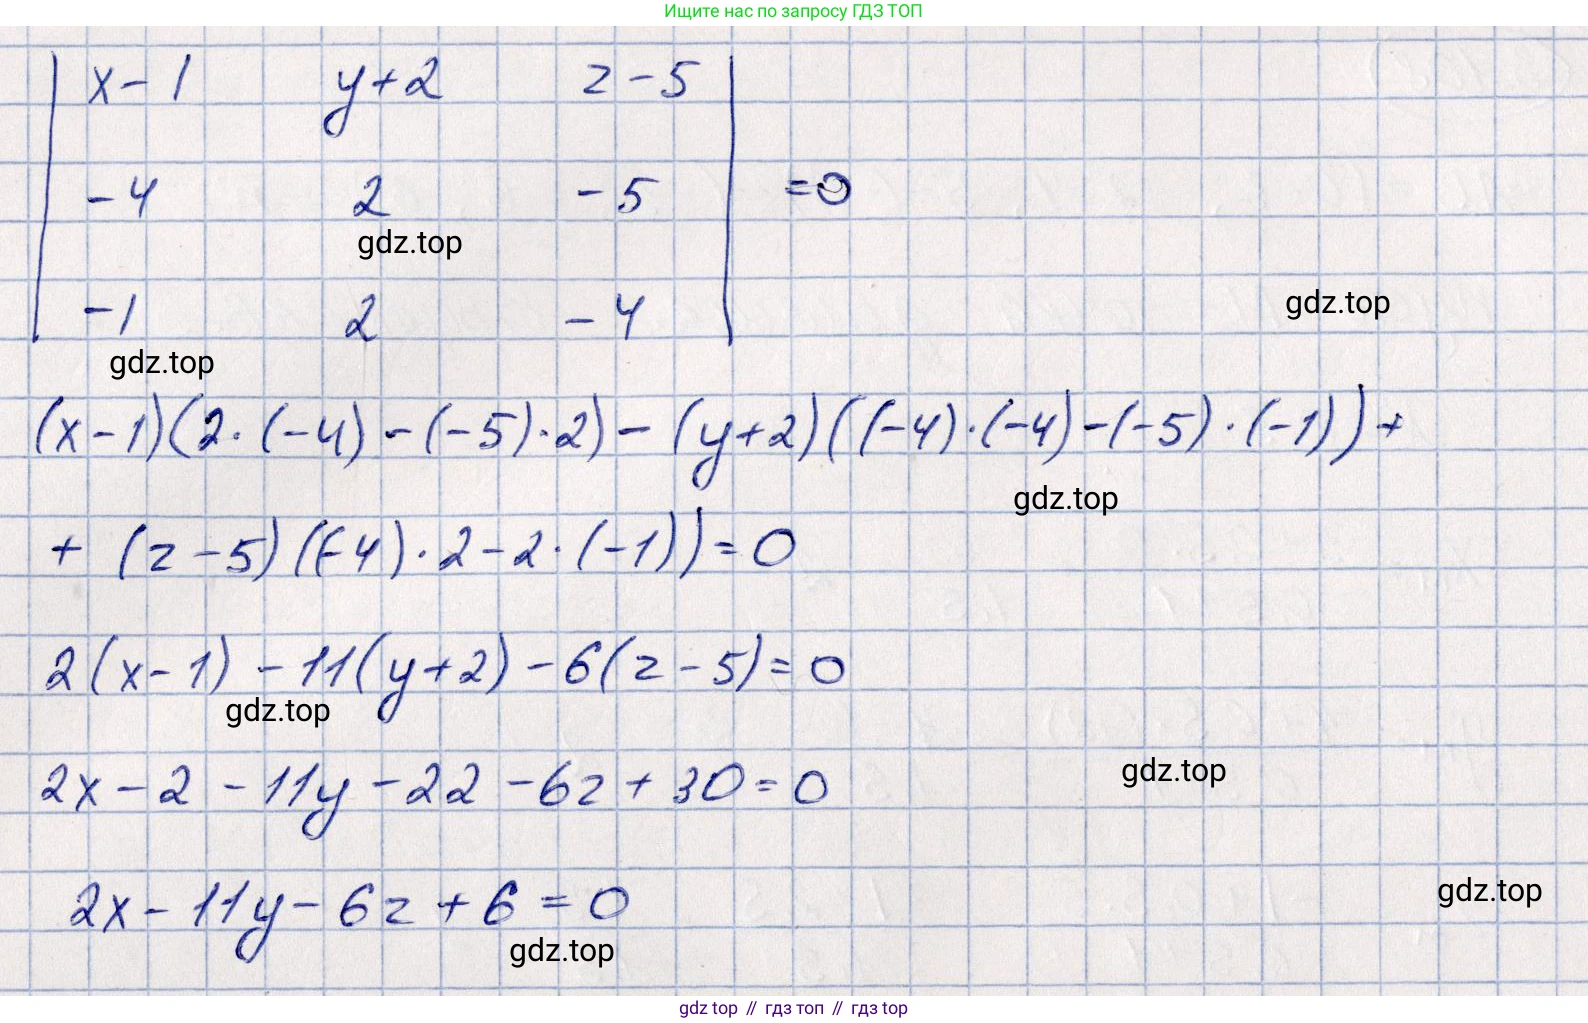 Ищите нас по запросу ГДЗ ТОП
| x-1 y+2 z-5 |
| -4 2 -5 | =0
gdz.top
| -1 2 -4 |
gdz.top
gdz.top
(x-1)(2·(-4)-(-5)·2)-(y+2)((-4)·(-4)-(-5)·(-1))+
gdz.top
+ (z-5)((-4)·2-2·(-1))=0
2(x-1)-11(y+2)-6(z-5)=0
gdz.top
2x-2-11y-22-6z+30=0
gdz.top
2x-11y-6z+6=0
gdz.top
gdz.top
gdz top // гдз топ // гдз top